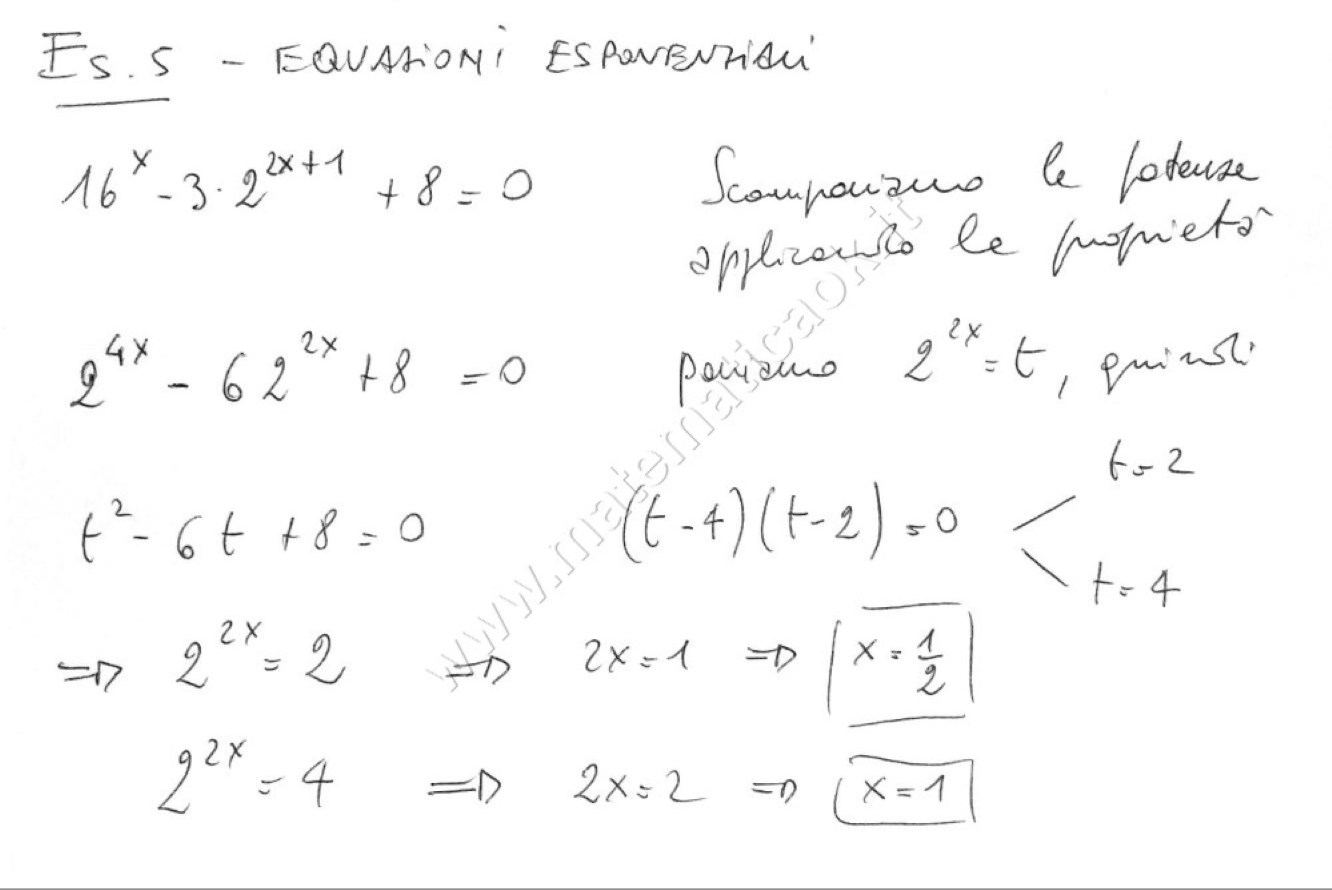 Es. 5 - EQUAZIONI ESPONENZIALI
16^x - 3 · 2^{2x+1} + 8 = 0 Scomponiamo le potenze
applicando le proprietà
2^{4x} - 6 2^{2x} + 8 = 0 poniamo 2^{2x} = t, quindi
t = 2
t^2 - 6t + 8 = 0 (t - 4)(t - 2) = 0
t = 4
⇒ 2^{2x} = 2 ⇒ 2x = 1 ⇒ x = 1/2
2^{2x} = 4 ⇒ 2x = 2 ⇒ x = 1
www.matematicaok.it